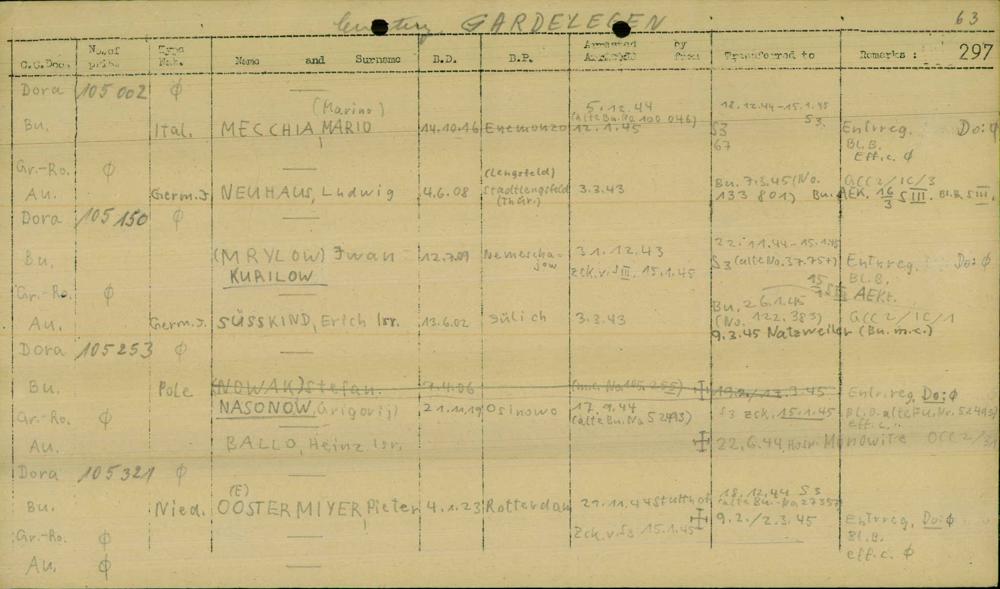 Cemetery GARDELEGEN 63
C.C.Doc. No. of pris. Type Nat. Name and Surname B.D. B.P. Arrested Arrived by from Transferred to Remarks : 297
Dora 105 002 ϕ —
(Marino) 5.12.44 18.12.44-15.1.45
Bu. Ital. MECCHIA, MARIO 14.10.16 Enemonzo (alte Bu. No 100 046) 12.1.45 S3 S3. Entrreg. Do: ϕ
67 Bl.B.
Eff.c. ϕ
Gr.-Ro. ϕ — (Lengsfeld)
Au. Germ.J. NEUHAUS, Ludwig 4.6.08 Stadtlengsfeld (Thür.) 3.3.43 Bu. 7.3.45 (No. 133 801) Bu. AEK. 16/3 S III. Bl.B. S III.
OCC 2/1C/3
Dora 105 150 ϕ —
22.11.44-15.1.45
Bu. (MRYLOW) Iwan 12.7.09 Nemescha- 31.12.43 S3 (alte No. 37.757) Entrreg. Do: ϕ
KURILOW jow zck.v. S III. 15.1.45 Bl.B.
Gr.-Ro. ϕ — 15 AEKt.
Au. Germ.J. SÜSSKIND, Erich Isr. 13.6.02 Jülich 3.3.43 Bu. 26.1.45 (No. 122.383) OCC 2/1C/1
9.3.45 Natzweiler (Bu.m.c.)
Dora 105 253 ϕ —
Bu. Pole (NOWAK) Stefan 9.4.06 (m.c. No 105.255) ✝ 13.3.45 Entrreg. Do: ϕ
Gr.-Ro. ϕ NASONOW, Grigorij) 21.11.19 Osinowo 17.9.44 (alte Bu. No 52493) S3 zck. 15.1.45 Bl.B. alte Bu. Nr. 52493)
eff.c.
Au. BALLO, Heinz Isr. ✝ 22.6.44, Monowitz OCC 2/
Dora 105 321 ϕ —
(E) 18.12.44 S3
Bu. Nied. OOSTERMIYER, Pieter 4.1.23 Rotterdam 29.11.44 Stutthof (alte Bu.-No 27357)
✝ 9.2./2.3.45 Entrreg. Do: ϕ
Gr.-Ro. ϕ — zck.v. S3 15.1.45 Bl.B.
eff.c. ϕ
Au. ϕ —